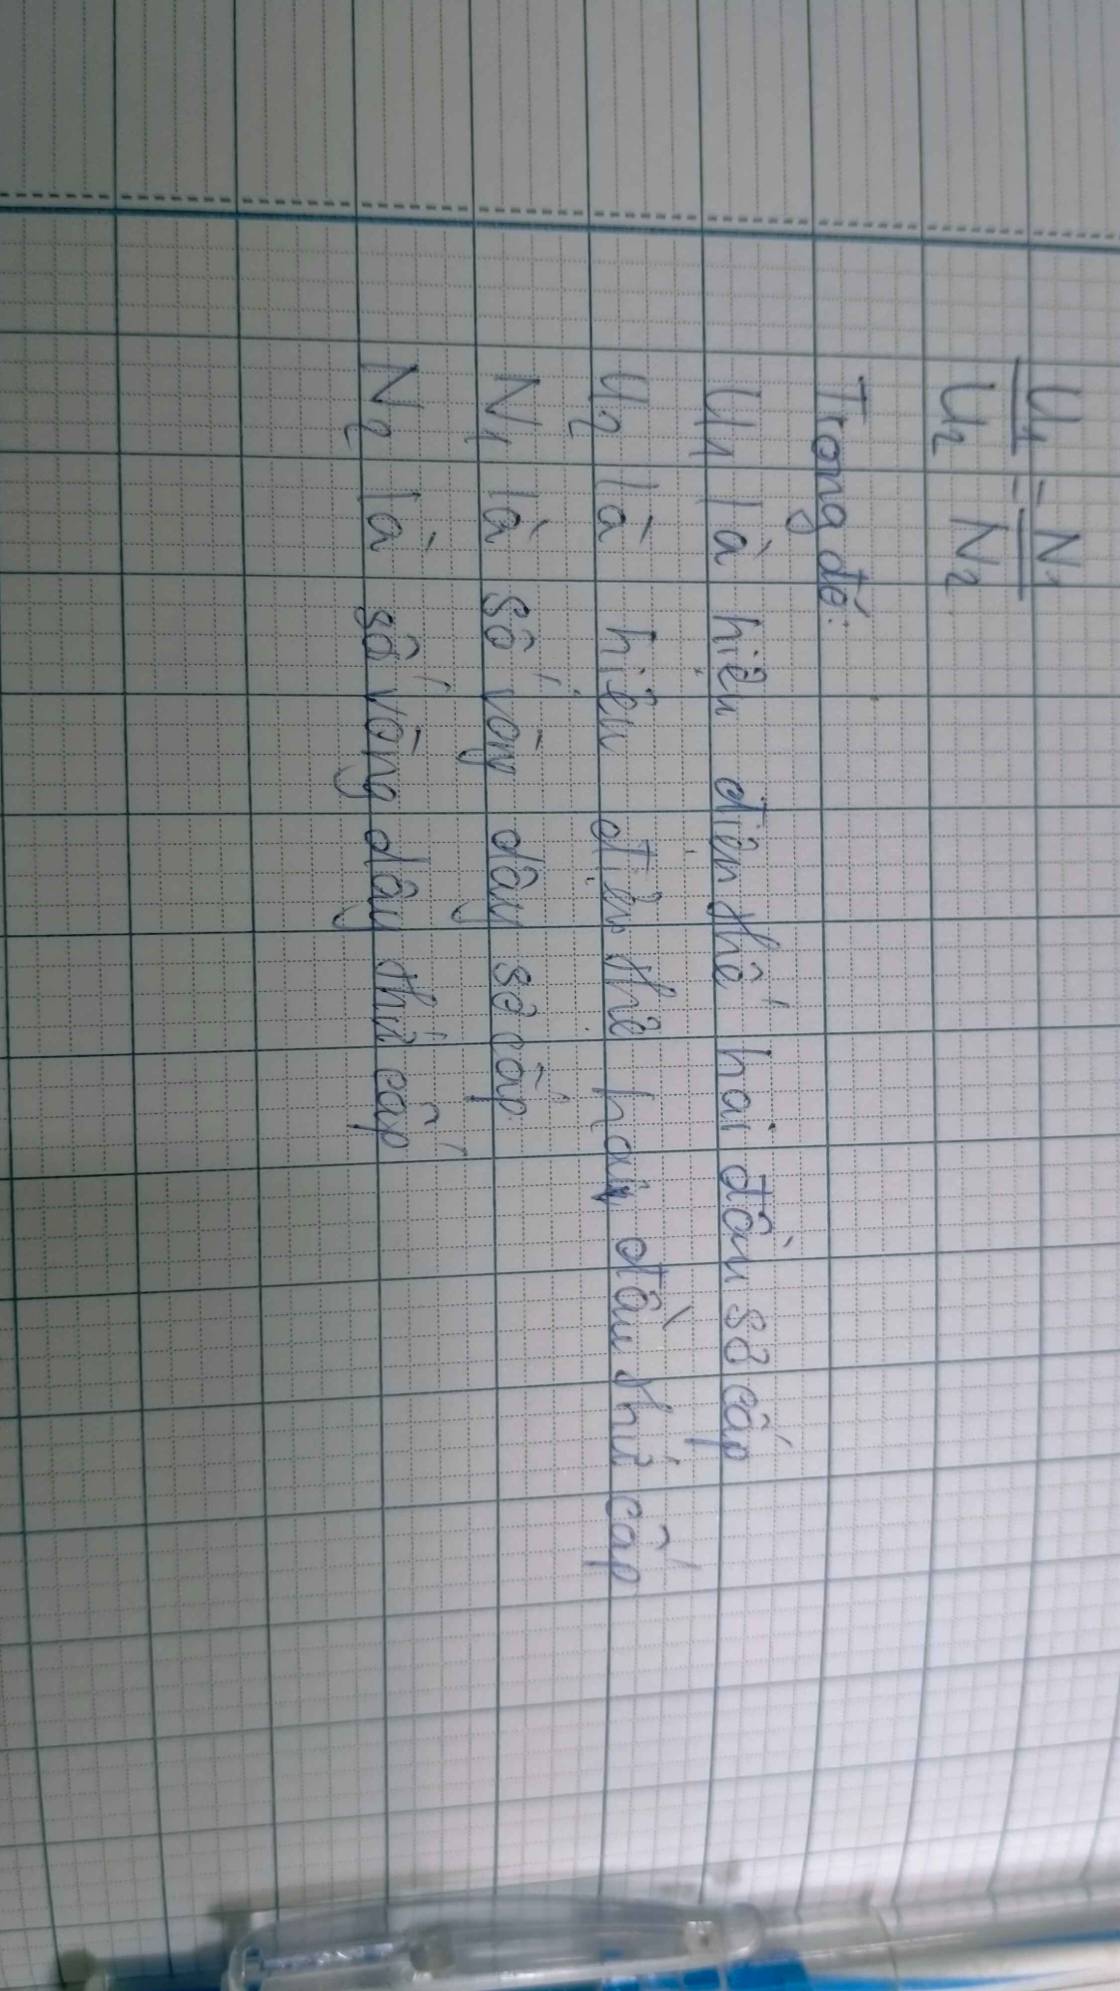 U1/U2 = N1/N2
Trong đó:
U1 là hiệu điện thế hai đầu sơ cấp
U2 là hiệu điện thế hai đầu thứ cấp
N1 là số vòng dây sơ cấp
N2 là số vòng dây thứ cấp